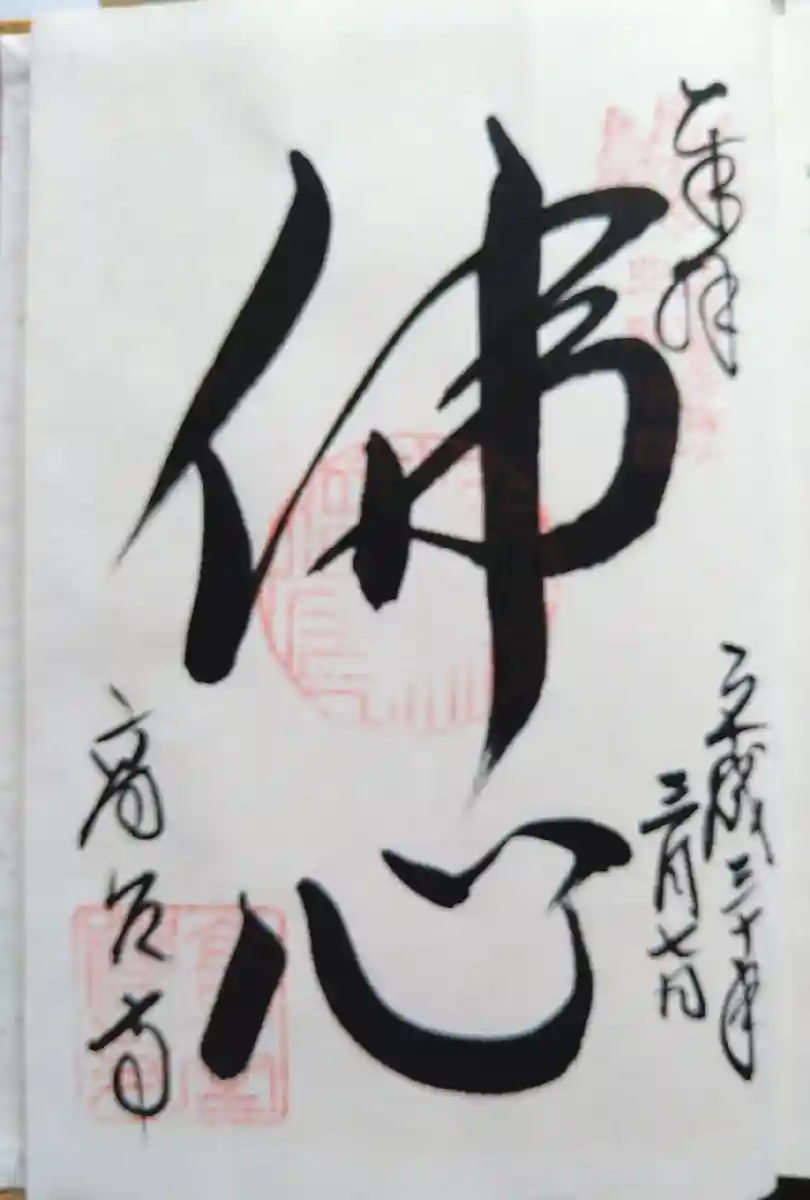 奉拝
平成三十年
三月七日
佛心
高台寺